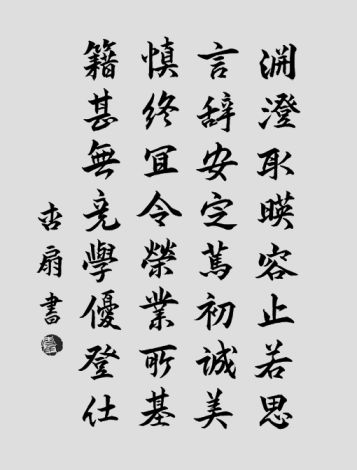 渊澄取暎容止若思
言辞安定篤初誠美
慎終冝令榮業所基
籍甚無竟學優登仕
杏扇書